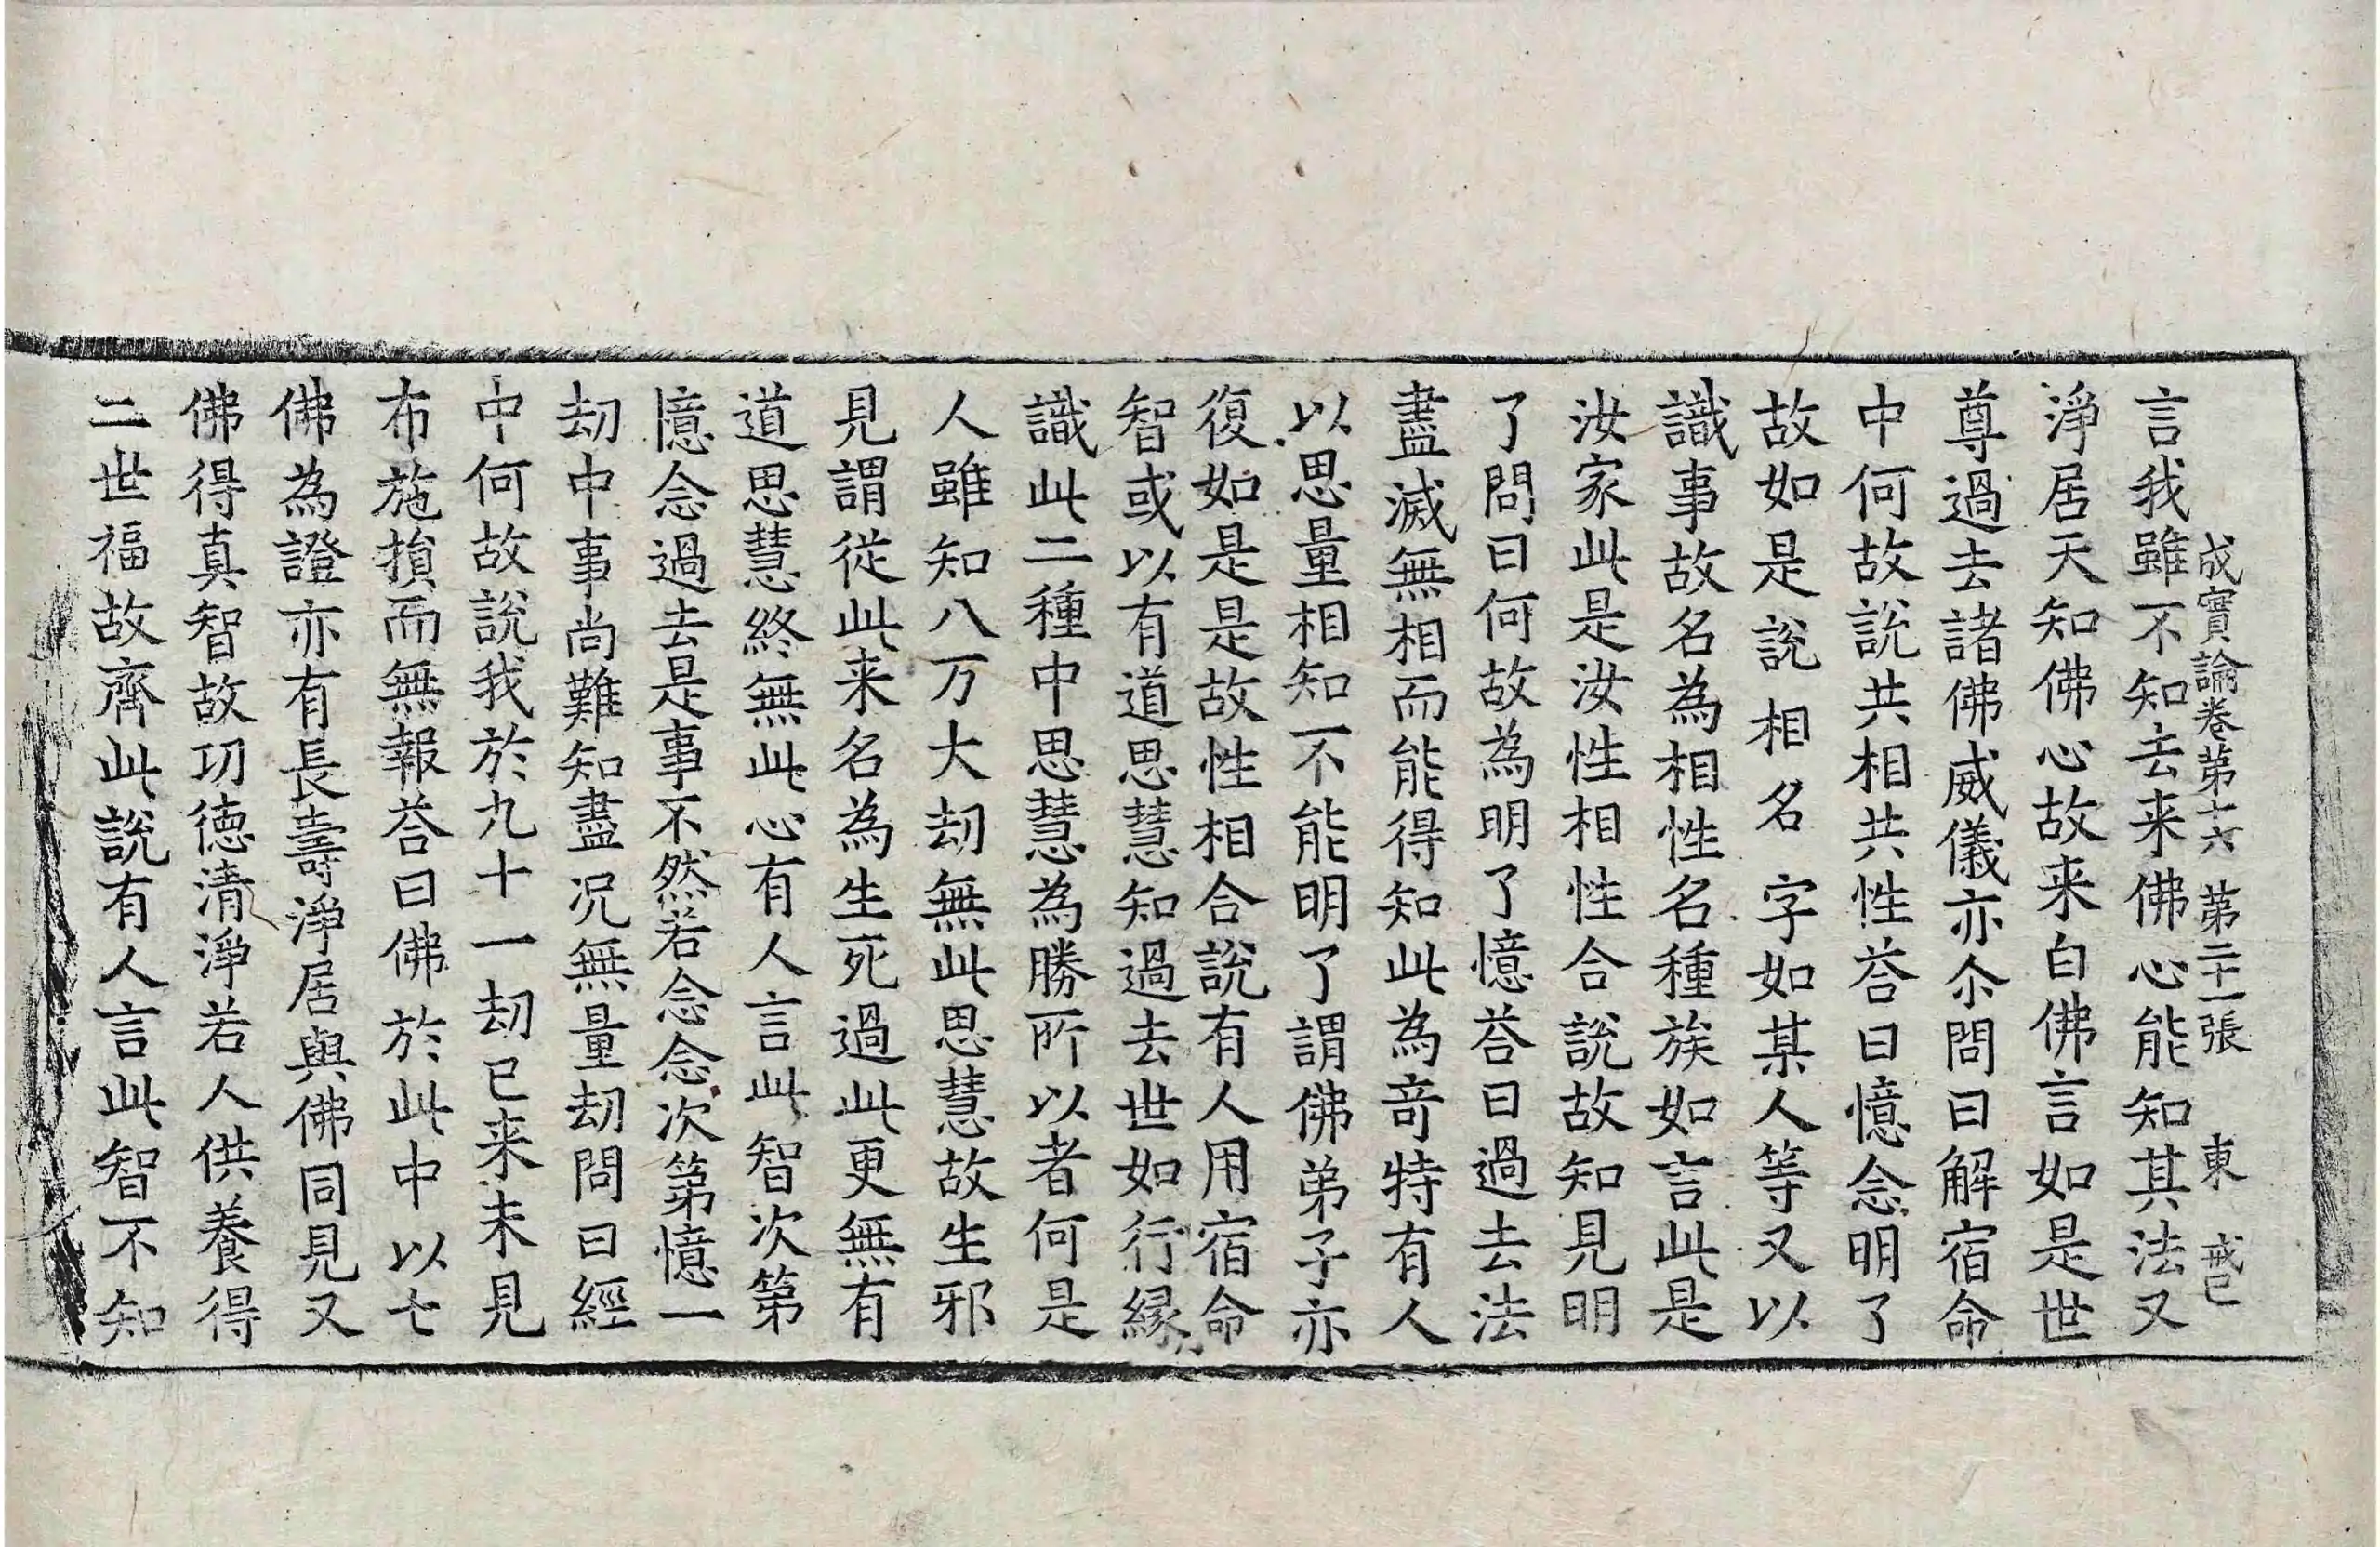 成實論卷第十六 第二十一張 東 戒巳
言我雖不知去来佛心能知其法又
淨居天知佛心故来白佛言如是世
尊過去諸佛威儀亦尒問曰解宿命
中何故說共相共性荅曰憶念明了
故如是說相名字如某人等又以
識事故名為相性名種族如言此是
汝家此是汝性相性合說故知見明
了問曰何故為明了憶荅曰過去法
盡滅無相而能得知此為竒特有人
以思量相知不能明了謂佛弟子亦
復如是是故性相合說有人用宿命
智或以有道思慧知過去世如行緣
識此二種中思慧為勝所以者何是
人雖知八万大劫無此思慧故生邪
見謂從此来名為生死過此更無有
道思慧終無此心有人言此智次第
憶念過去是事不然若念念次第憶一
劫中事尚難知盡况無量劫問曰經
中何故說我於九十一劫已来未見
布施損而無報荅曰佛於此中以七
佛為證亦有長壽淨居與佛同見又
佛得真智故功德清淨若人供養得
二世福故齊此說有人言此智不知